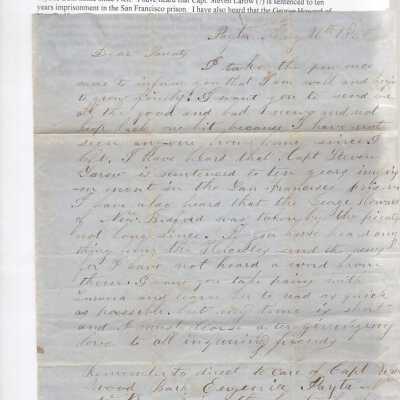 years imprisonment in the San Francisco prison. I have also heard that the George Howard of
Dear Parents
I take the pen once
more to inform you that I am well and hope
to grow I want you to send me
all the good and bad news and not
keep back one bit, because I have not
seen any from home since I
left. I have heard that Capt Steven
Larow is sentenced to ten years impris
onment in the San Francisco prison
I have also heard that the George Howard
of New Bedford was taken by the pirates
not long since. Do you have heard any
thing from the Hercules and the
for I have not heard a word from
them. I want you take pains with
and learn her to read as quick
as possible. but my time is short
and I must close after giving my
love to all inquiring friends
remember to direct to care of Capt
wood bark Eugenia